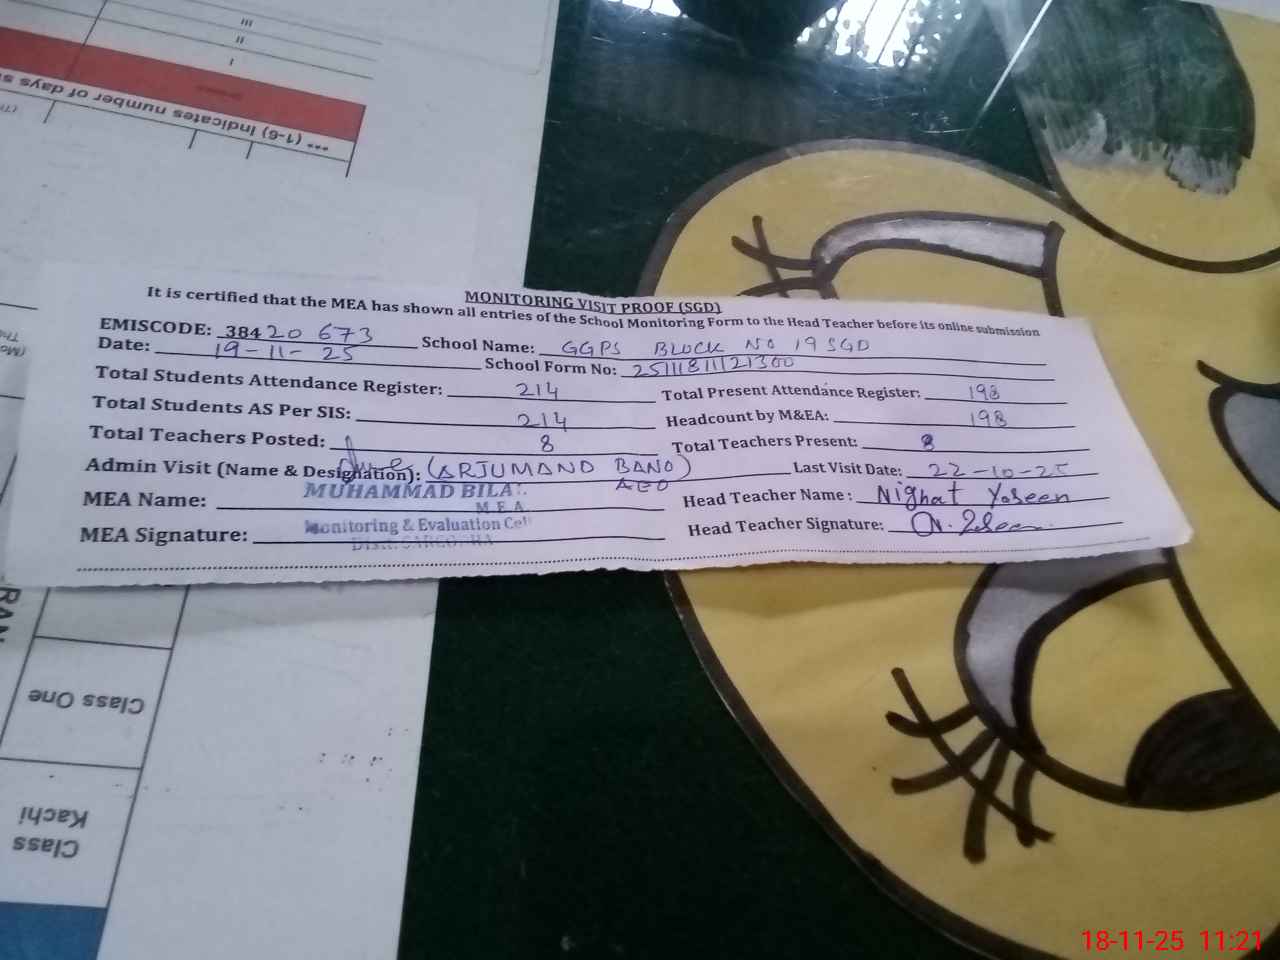 III
II
I
*** (1-6) Indicates number of days s
MONITORING VISIT PROOF (SGD)
It is certified that the MEA has shown all entries of the School Monitoring Form to the Head Teacher before its online submission
EMISCODE: 38420673 School Name: GGPS BLOCK NO 19 SGD
Date: 19-11-25 School Form No: 25111811121300
Total Students Attendance Register: 214 Total Present Attendance Register: 198
Total Students AS Per SIS: 214 Headcount by M&EA: 198
Total Teachers Posted: 8 Total Teachers Present: 8
Admin Visit (Name & Designation): (ARJUMAND BANO) AEO Last Visit Date: 22-10-25
MEA Name: MUHAMMAD BILAL Head Teacher Name: Nighat Yaseen
M.E.A
MEA Signature: Monitoring & Evaluation Cell Head Teacher Signature:
Distt: SARGODHA
Class One
Class
Kachi
18-11-25 11:21